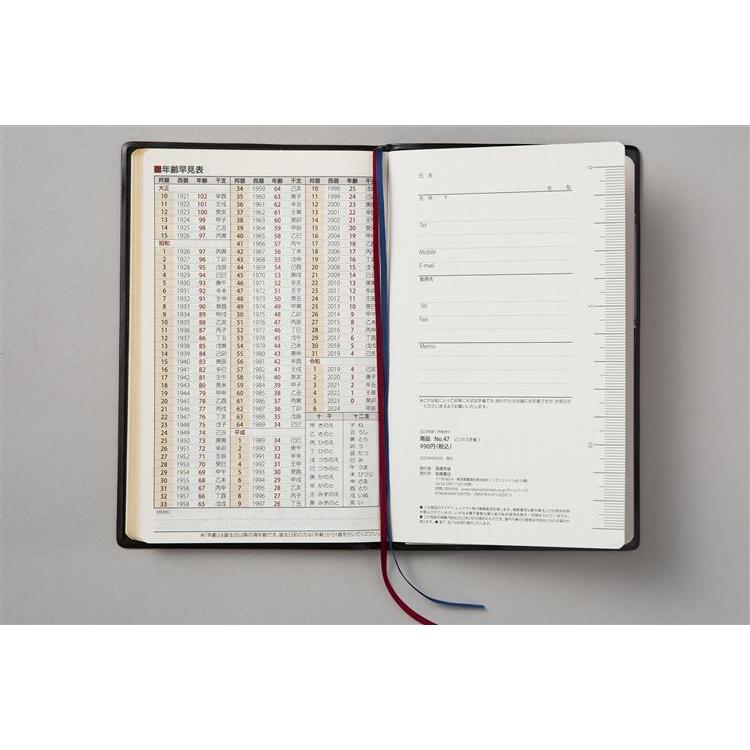 ■年齢早見表
邦暦 西暦 年齢 干支
大正
10 1921 102 辛酉
11 1922 101 壬戌
12 1923 100 癸亥
13 1924 99 甲子
14 1925 98 乙丑
15 1926 97 丙寅
昭和
1 1926 97 丙寅
2 1927 96 丁卯
3 1928 95 戊辰
4 1929 94 己巳
5 1930 93 庚午
6 1931 92 辛未
7 1932 91 壬申
8 1933 90 癸酉
9 1934 89 甲戌
10 1935 88 乙亥
11 1936 87 丙子
12 1937 86 丁丑
13 1938 85 戊寅
14 1939 84 己卯
15 1940 83 庚辰
16 1941 82 辛巳
17 1942 81 壬午
18 1943 80 癸未
19 1944 79 甲申
20 1945 78 乙酉
21 1946 77 丙戌
22 1947 76 丁亥
23 1948 75 戊子
24 1949 74 己丑
25 1950 73 庚寅
26 1951 72 辛卯
27 1952 71 壬辰
28 1953 70 癸巳
29 1954 69 甲午
30 1955 68 乙未
31 1956 67 丙申
32 1957 66 丁酉
33 1958 65 戊戌
邦暦 西暦 年齢 干支
34 1959 64 己亥
35 1960 63 庚子
36 1961 62 辛丑
37 1962 61 壬寅
38 1963 60 癸卯
39 1964 59 甲辰
40 1965 58 乙巳
41 1966 57 丙午
42 1967 56 丁未
43 1968 55 戊申
44 1969 54 己酉
45 1970 53 庚戌
46 1971 52 辛亥
47 1972 51 壬子
48 1973 50 癸丑
49 1974 49 甲寅
50 1975 48 乙卯
51 1976 47 丙辰
52 1977 46 丁巳
53 1978 45 戊午
54 1979 44 己未
55 1980 43 庚申
56 1981 42 辛酉
57 1982 41 壬戌
58 1983 40 癸亥
59 1984 39 甲子
60 1985 38 乙丑
61 1986 37 丙寅
62 1987 36 丁卯
63 1988 35 戊辰
64 1989 34 己巳
平成
1 1989 34 己巳
2 1990 33 庚午
3 1991 32 辛未
4 1992 31 壬申
5 1993 30 癸酉
6 1994 29 甲戌
7 1995 28 乙亥
8 1996 27 丙子
9 1997 26 丁丑
邦暦 西暦 年齢 干支
10 1998 25 戊寅
11 1999 24 己卯
12 2000 23 庚辰
13 2001 22 辛巳
14 2002 21 壬午
15 2003 20 癸未
16 2004 19 甲申
17 2005 18 乙酉
18 2006 17 丙戌
19 2007 16 丁亥
20 2008 15 戊子
21 2009 14 己丑
22 2010 13 庚寅
23 2011 12 辛卯
24 2012 11 壬辰
25 2013 10 癸巳
26 2014 9 甲午
27 2015 8 乙未
28 2016 7 丙申
29 2017 6 丁酉
30 2018 5 戊戌
31 2019 4 己亥
令和
1 2019 4 己亥
2 2020 3 庚子
3 2021 2 辛丑
4 2022 1 壬寅
5 2023 0 癸卯
6 2024 甲辰
十干
甲 きのえ
乙 きのと
丙 ひのえ
丁 ひのと
戊 つちのえ
己 つちのと
庚 かのえ
辛 かのと
壬 みずのえ
癸 みずのと
十二支
子 ね
丑 うし
寅 とら
卯 う
辰 たつ
巳 み
午 うま
未 ひつじ
申 さる
酉 とり
戌 いぬ
亥 い
MEMO
※「年齢」は誕生日以降の満年齢です。誕生日前の方は「年齢」から1歳を引いてください。
氏 名
・ ・ 生 型
住 所 〒
Tel
Mobile
E-mail
勤務先
Tel
Fax
Memo
※これは私にとって非常に大切な手帳です。拾われた方は誠にお手数ですが、お知らせ
くださいますようお願いいたします。
商品 No.47 ビジネス手帳 1
990円(税込)
0
5
10